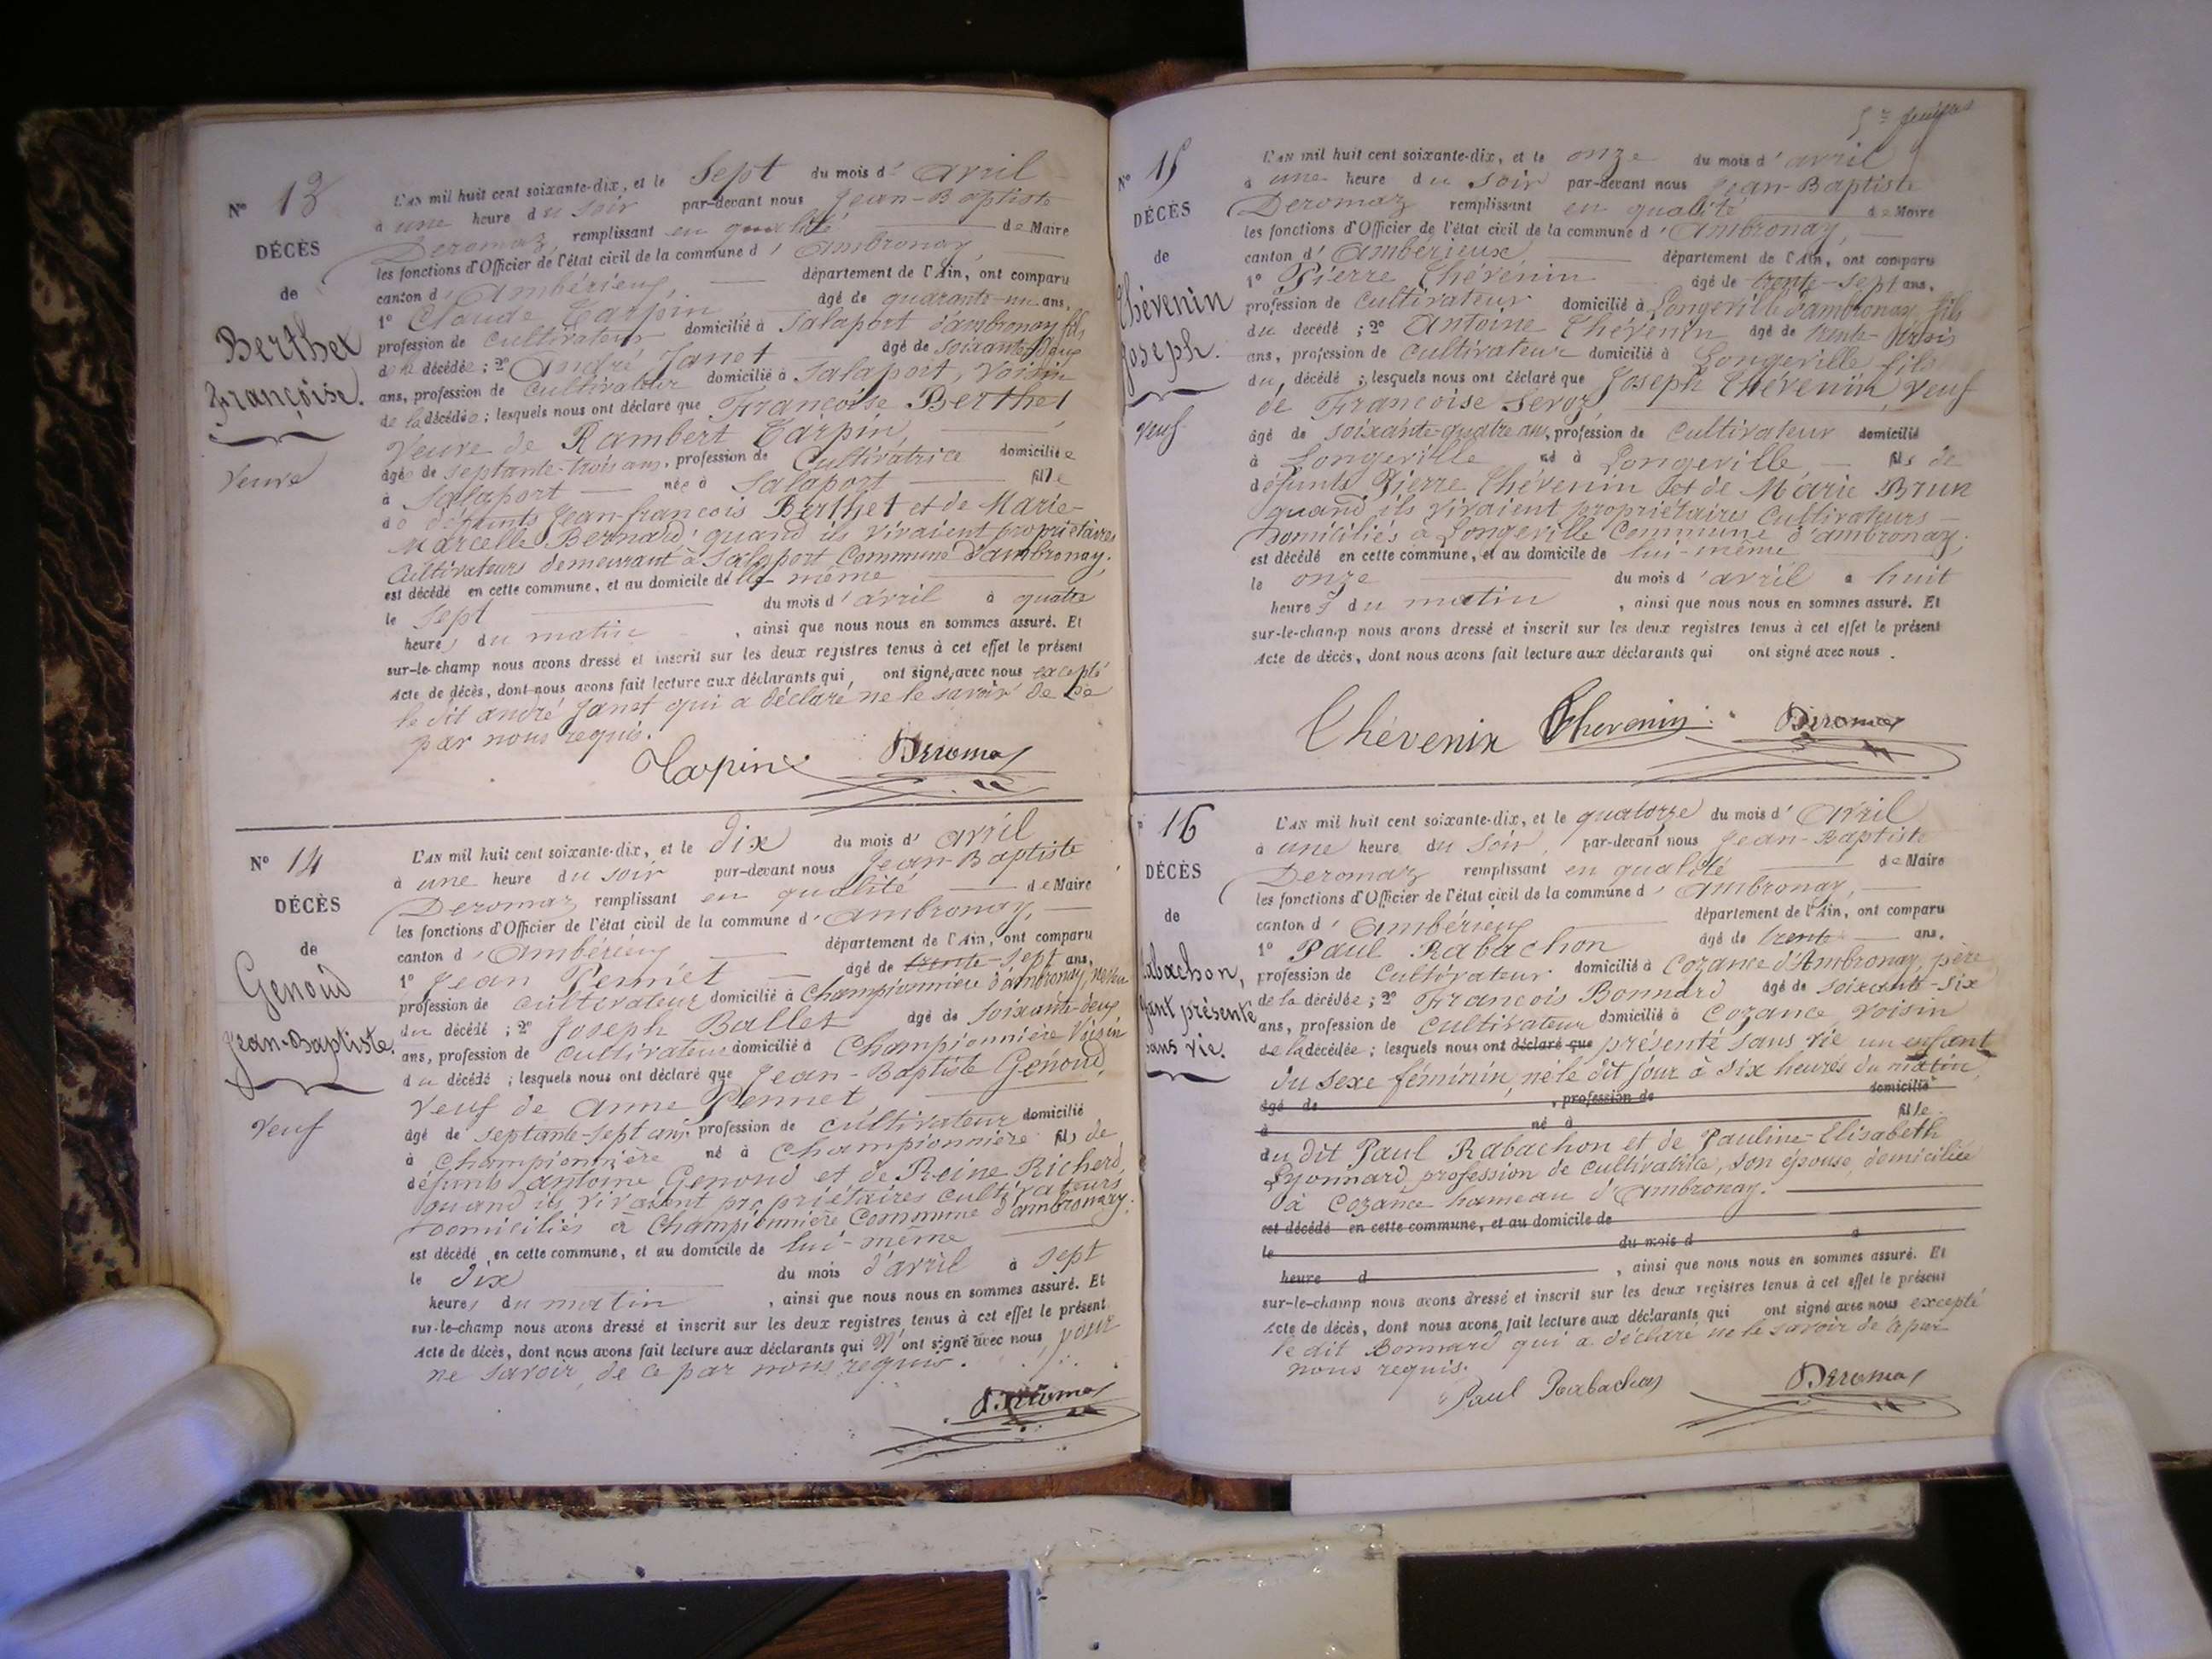 N° 13
DÉCÈS
de
Berthet
Françoise.
Veuve
L'AN mil huit cent soixante-dix, et le Sept du mois d'avril
à une heure du soir par-devant nous Jean-Baptiste
Deromaz, remplissant en qualité de Maire
les fonctions d'Officier de l'état civil de la commune d'Ambronay,
canton d'Ambérieux, département de l'Ain, ont comparu
1° Claude Tarpin âgé de quarante-un ans,
profession de cultivateur domicilié à Salaport d'ambronay fils
de la décédée ; 2° André Janet âgé de soixante-deux
ans, profession de Cultivateur domicilié à Salaport, voisin
de la décédée ; lesquels nous ont déclaré que Françoise Berthet
Veuve de Rambert Tarpin,
âgée de septante-trois ans, profession de Cultivatrice domiciliée
à Salaport née à Salaport fille
de défunts Jean-françois Berthet et de Marie-
Marcelle Bernard quand ils vivaient propriétaires
Cultivateurs demeurant à Salaport Commune d'ambronay,
est décédé en cette commune, et au domicile d'elle même
le sept du mois d'avril à quatre
heures du matin , ainsi que nous nous en sommes assuré. Et
sur-le-champ nous avons dressé et inscrit sur les deux registres tenus à cet effet le présent
Acte de décès, dont nous avons fait lecture aux déclarants qui, ont signé avec nous excepté
le dit andré Janet qui a déclaré ne le savoir de ce
par nous requis.
Tarpin Deromaz
N° 14
DÉCÈS
de
Genoud
Jean-Baptiste.
Veuf
L'AN mil huit cent soixante-dix, et le Dix du mois d'avril
à une heure du soir par-devant nous Jean-Baptiste
Deromaz remplissant en qualité de Maire
les fonctions d'Officier de l'état civil de la commune d'Ambronay,
canton d'Ambérieux département de l'Ain, ont comparu
1° Jean Pennet âgé de trente-sept ans,
profession de cultivateur domicilié à Championnière d'ambronay, neveu
du décédé ; 2° Joseph Ballet âgé de soixante-deux
ans, profession de cultivateur domicilié à Championnière Voisin
du décédé ; lesquels nous ont déclaré que Jean-Baptiste Genoud,
Veuf de Anne Pennet
âgé de septante-sept ans, profession de cultivateur domicilié
à Championnière né à Championnière fils de
défunts antoine Genoud et de Reine Richerd,
quand ils vivaient propriétaires cultivateurs
Domiciliés à Championnière Commune d'ambronay.
est décédé en cette commune, et au domicile de lui-même
le dix du mois d'avril à sept
heures du matin , ainsi que nous nous en sommes assuré. Et
sur-le-champ nous avons dressé et inscrit sur les deux registres tenus à cet effet le présent
Acte de décès, dont nous avons fait lecture aux déclarants qui N'ont signé avec nous pour
ne savoir, de ce par nous requis.
Deromaz
5me feuillet
N° 15
DÉCÈS
de
Chévenin
Joseph.
Veuf
L'AN mil huit cent soixante-dix, et le onze du mois d'avril
à une heure du Soir par-devant nous Jean-Baptiste
Deromaz remplissant en qualité de Maire
les fonctions d'Officier de l'état civil de la commune d'Ambronay,
canton d'Ambérieux département de l'Ain, ont comparu
1° Pierre Chévenin âgé de trente-sept ans,
profession de Cultivateur domicilié à Longeville d'ambronay fils
du décédé ; 2° Antoine Chévenin âgé de trente-trois
ans, profession de Cultivateur domicilié à Longeville fils
du décédé ; lesquels nous ont déclaré que Joseph Chévenin, Veuf
de Françoise Servoz
âgé de soixante-quatre ans, profession de Cultivateur domicilié
à Longeville né à Longeville, fils de
défunts Pierre Chévenin et de Marie Brun
quand ils vivaient propriétaires Cultivateurs
Domiciliés à Longeville Commune d'ambronay,
est décédé en cette commune, et au domicile de lui-même
le onze du mois d'avril à huit
heures du matin , ainsi que nous nous en sommes assuré. Et
sur-le-champ nous avons dressé et inscrit sur les deux registres tenus à cet effet le présent
Acte de décès, dont nous avons fait lecture aux déclarants qui ont signé avec nous.
Chévenin Chevenin Deromaz
16
DÉCÈS
de
Rabachon,
fant présenté
sans vie.
L'AN mil huit cent soixante-dix, et le quatorze du mois d'Avril
à une heure du Soir, par-devant nous Jean-Baptiste
Deromaz remplissant en qualité de Maire
les fonctions d'Officier de l'état civil de la commune d'Ambronay,
canton d'Ambérieux département de l'Ain, ont comparu
1° Paul Rabachon âgé de trente ans,
profession de Cultivateur domicilié à Cozance d'Ambronay, père
de la décédée ; 2° François Bonnard âgé de soixante-six
ans, profession de cultivateur domicilié à Cozance voisin
de la décédée ; lesquels nous ont déclaré que présenté sans vie un enfant
du sexe féminin, né le dit jour à six heures du matin,
âgé de , profession de domicilié
à né à fille
du dit Paul Rabachon et de Pauline-Elisabeth
Lyonnard, profession de cultivatrice, son épouse, domiciliée
à Cozance hameau d'Ambronay.
est décédé en cette commune, et au domicile de
le du mois d à
heure d , ainsi que nous nous en sommes assuré. Et
sur-le-champ nous avons dressé et inscrit sur les deux registres tenus à cet effet le présent
Acte de décès, dont nous avons fait lecture aux déclarants qui ont signé avec nous excepté
le dit Bonnard qui a déclaré ne le savoir de ce par
nous requis.
Paul Rabachon Deromaz